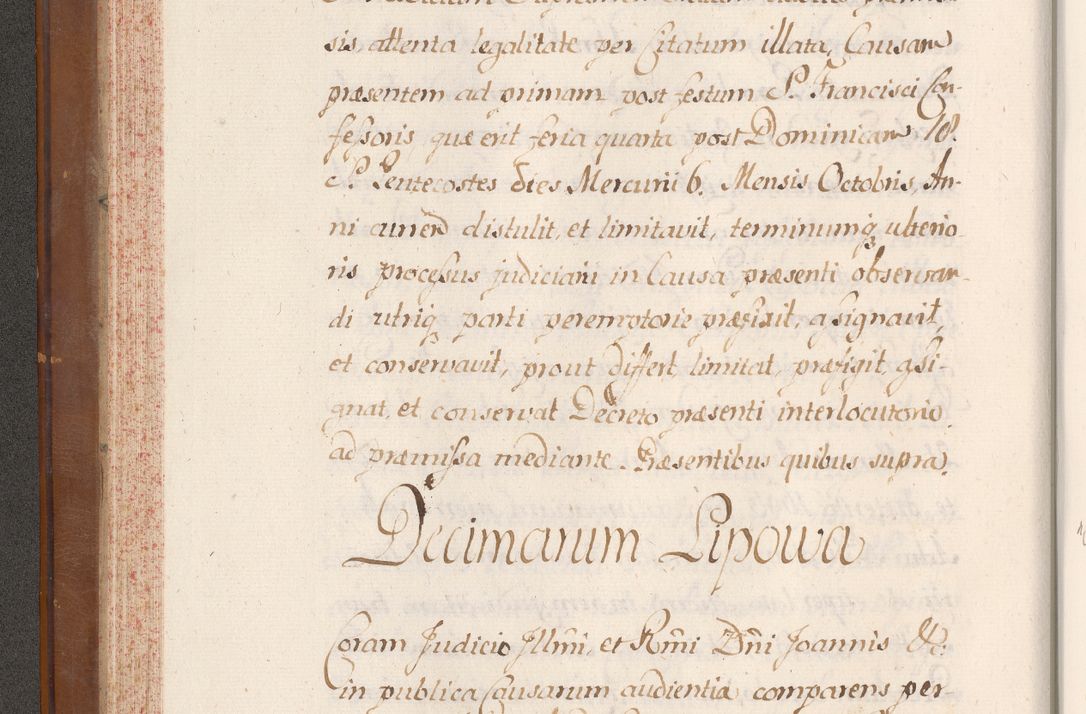 sis, attenta legalitate per Citatum illata, Causam
præsentem ad primam post festum S. Francisci Con-
feſsoris, quæ erit feria quarta post Dominicam 18.
S. Pentecostes dies Mercurii 6. Mensis Octobris, An-
ni curren distulit, et limitavit, terminumq ulterio
ris proceſsus judiciarii in Causa præsenti observan-
di utriq parti peremptorie præfixit, aſsignavit,
et conservavit, prout differt, limitat, præfigit, aſsi-
gnat, et conservat Decreto præsenti interlocutorio
ad præmiſsa mediante. Præsentibus quibus supra.
Decimarum Lipowa
Coram Judicio Illmi, et Rmi Dni Joannis &c.
in publica Causarum audientia comparens per-